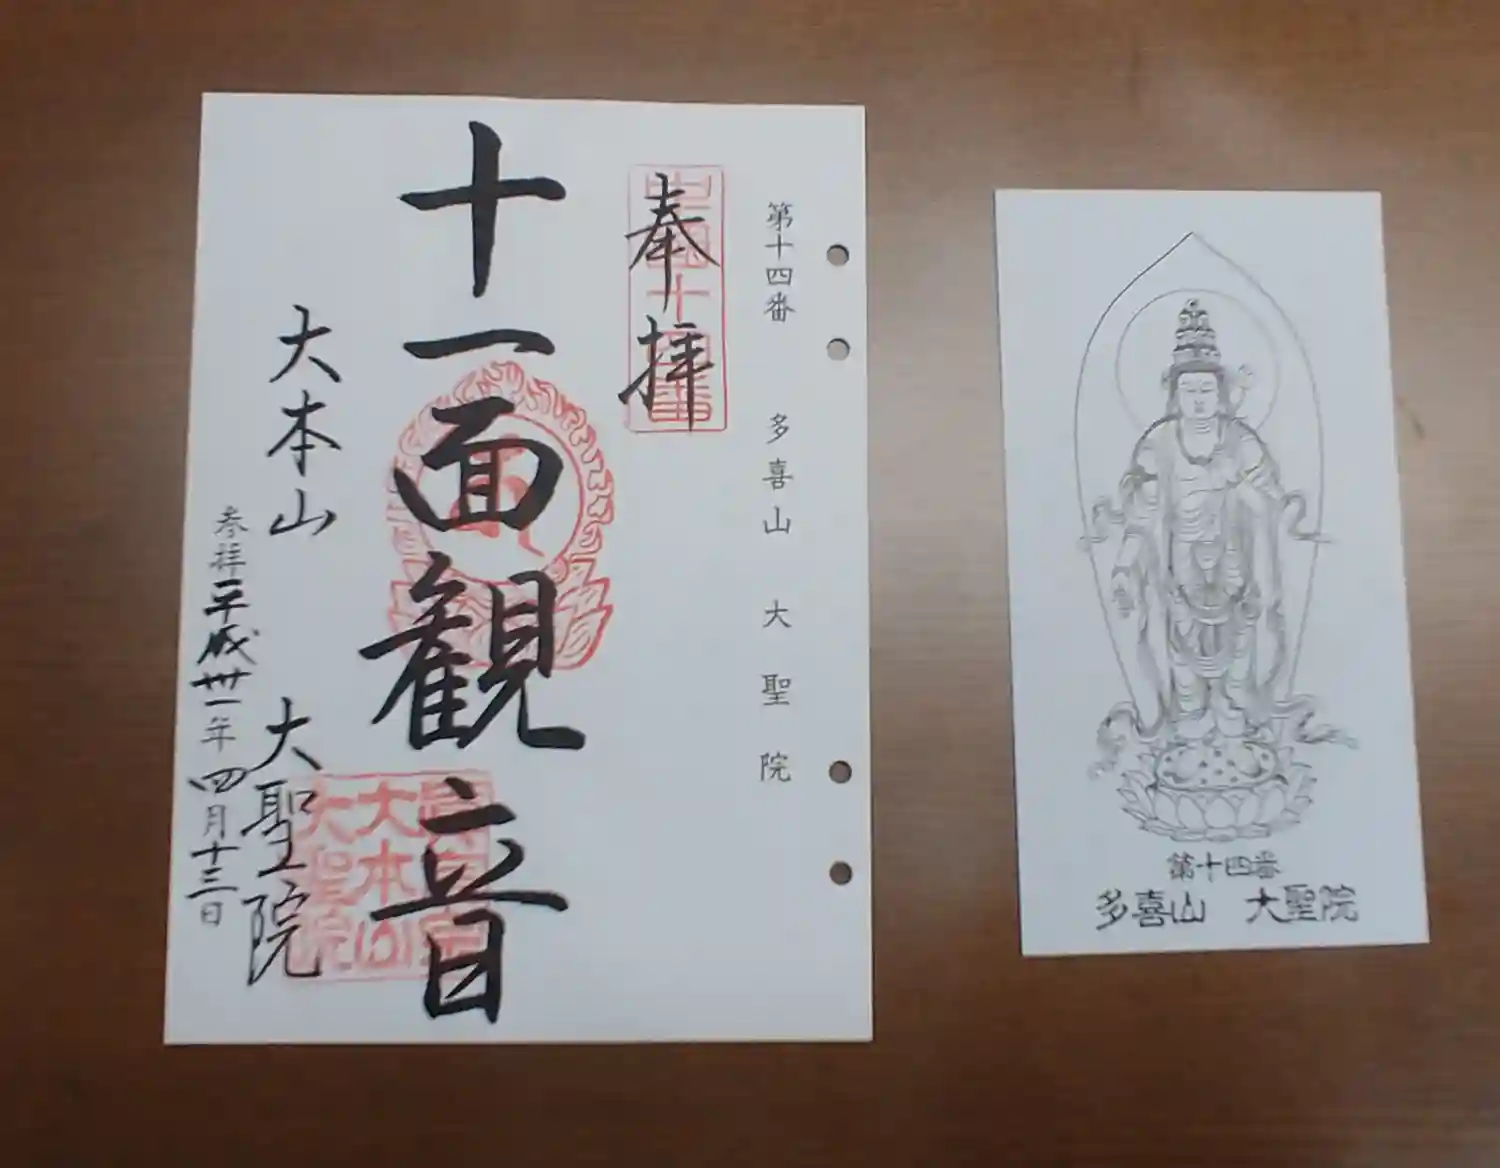 第十四番 多喜山 大聖院
奉拝
十一面観音
大本山 大聖院
参拝平成卅一年四月十三日
大本山
大聖院
第十四番
多喜山 大聖院